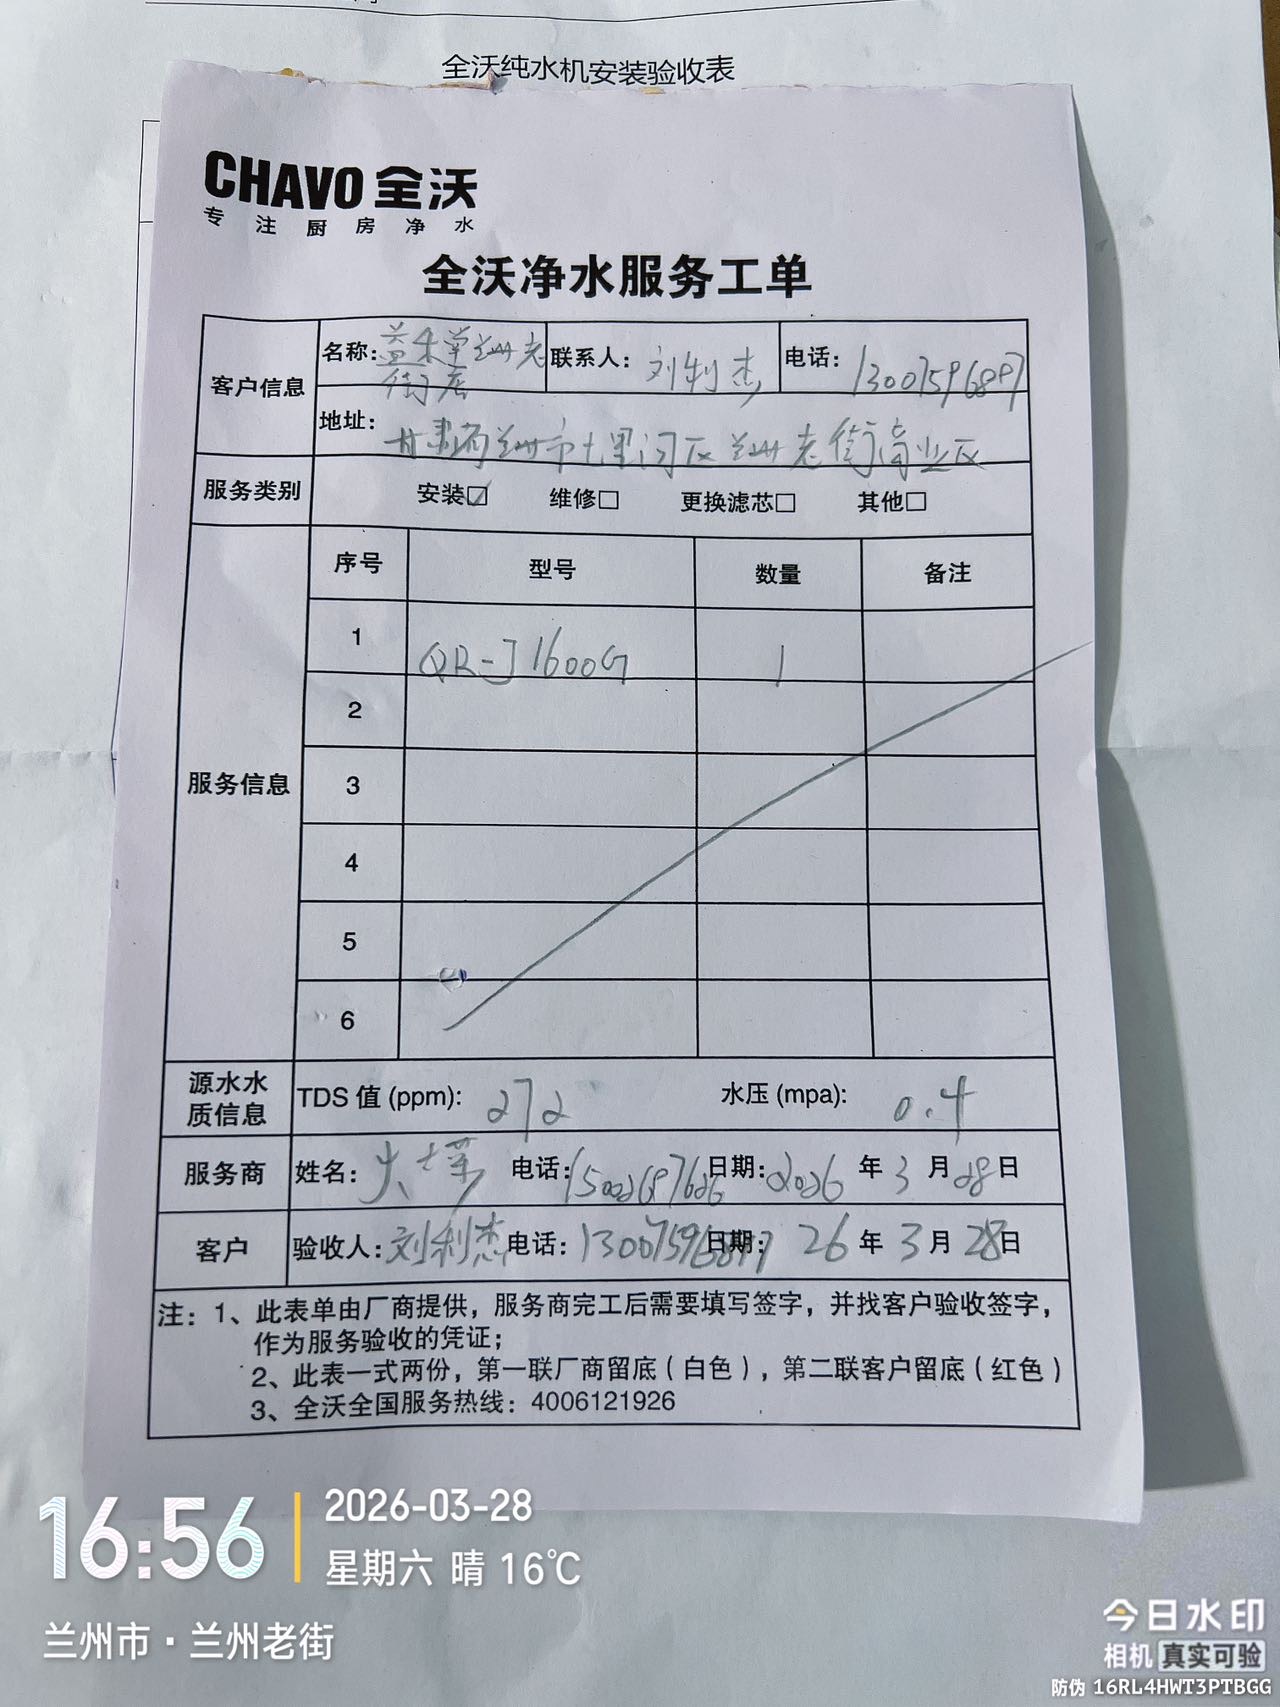 全沃纯水机安装验收表
CHAVO 全沃
专注厨房净水
全沃净水服务工单
客户信息
名称：益禾堂兰州老街店
联系人：刘利杰
电话：13007596897
地址：甘肃省兰州市七里河区兰州老街商业区
服务类别 安装☑ 维修□ 更换滤芯□ 其他□
服务信息
序号 型号 数量 备注
1 QR-J1600G 1
2
3
4
5
6
源水水质信息
TDS 值 (ppm): 272 水压 (mpa): 0.4
服务商 姓名： 电话： 日期：2026 年 3 月 28 日
客户 验收人：刘利杰 电话：13007596897 日期：26 年 3 月 28 日
注：1、此表单由厂商提供，服务商完工后需要填写签字，并找客户验收签字，
作为服务验收的凭证；
2、此表一式两份，第一联厂商留底（白色），第二联客户留底（红色）
3、全沃全国服务热线：4006121926
16:56
2026-03-28
星期六 晴 16℃
兰州市·兰州老街
今日水印
相机 真实可验
防伪 16RL4HWT3PTBGG